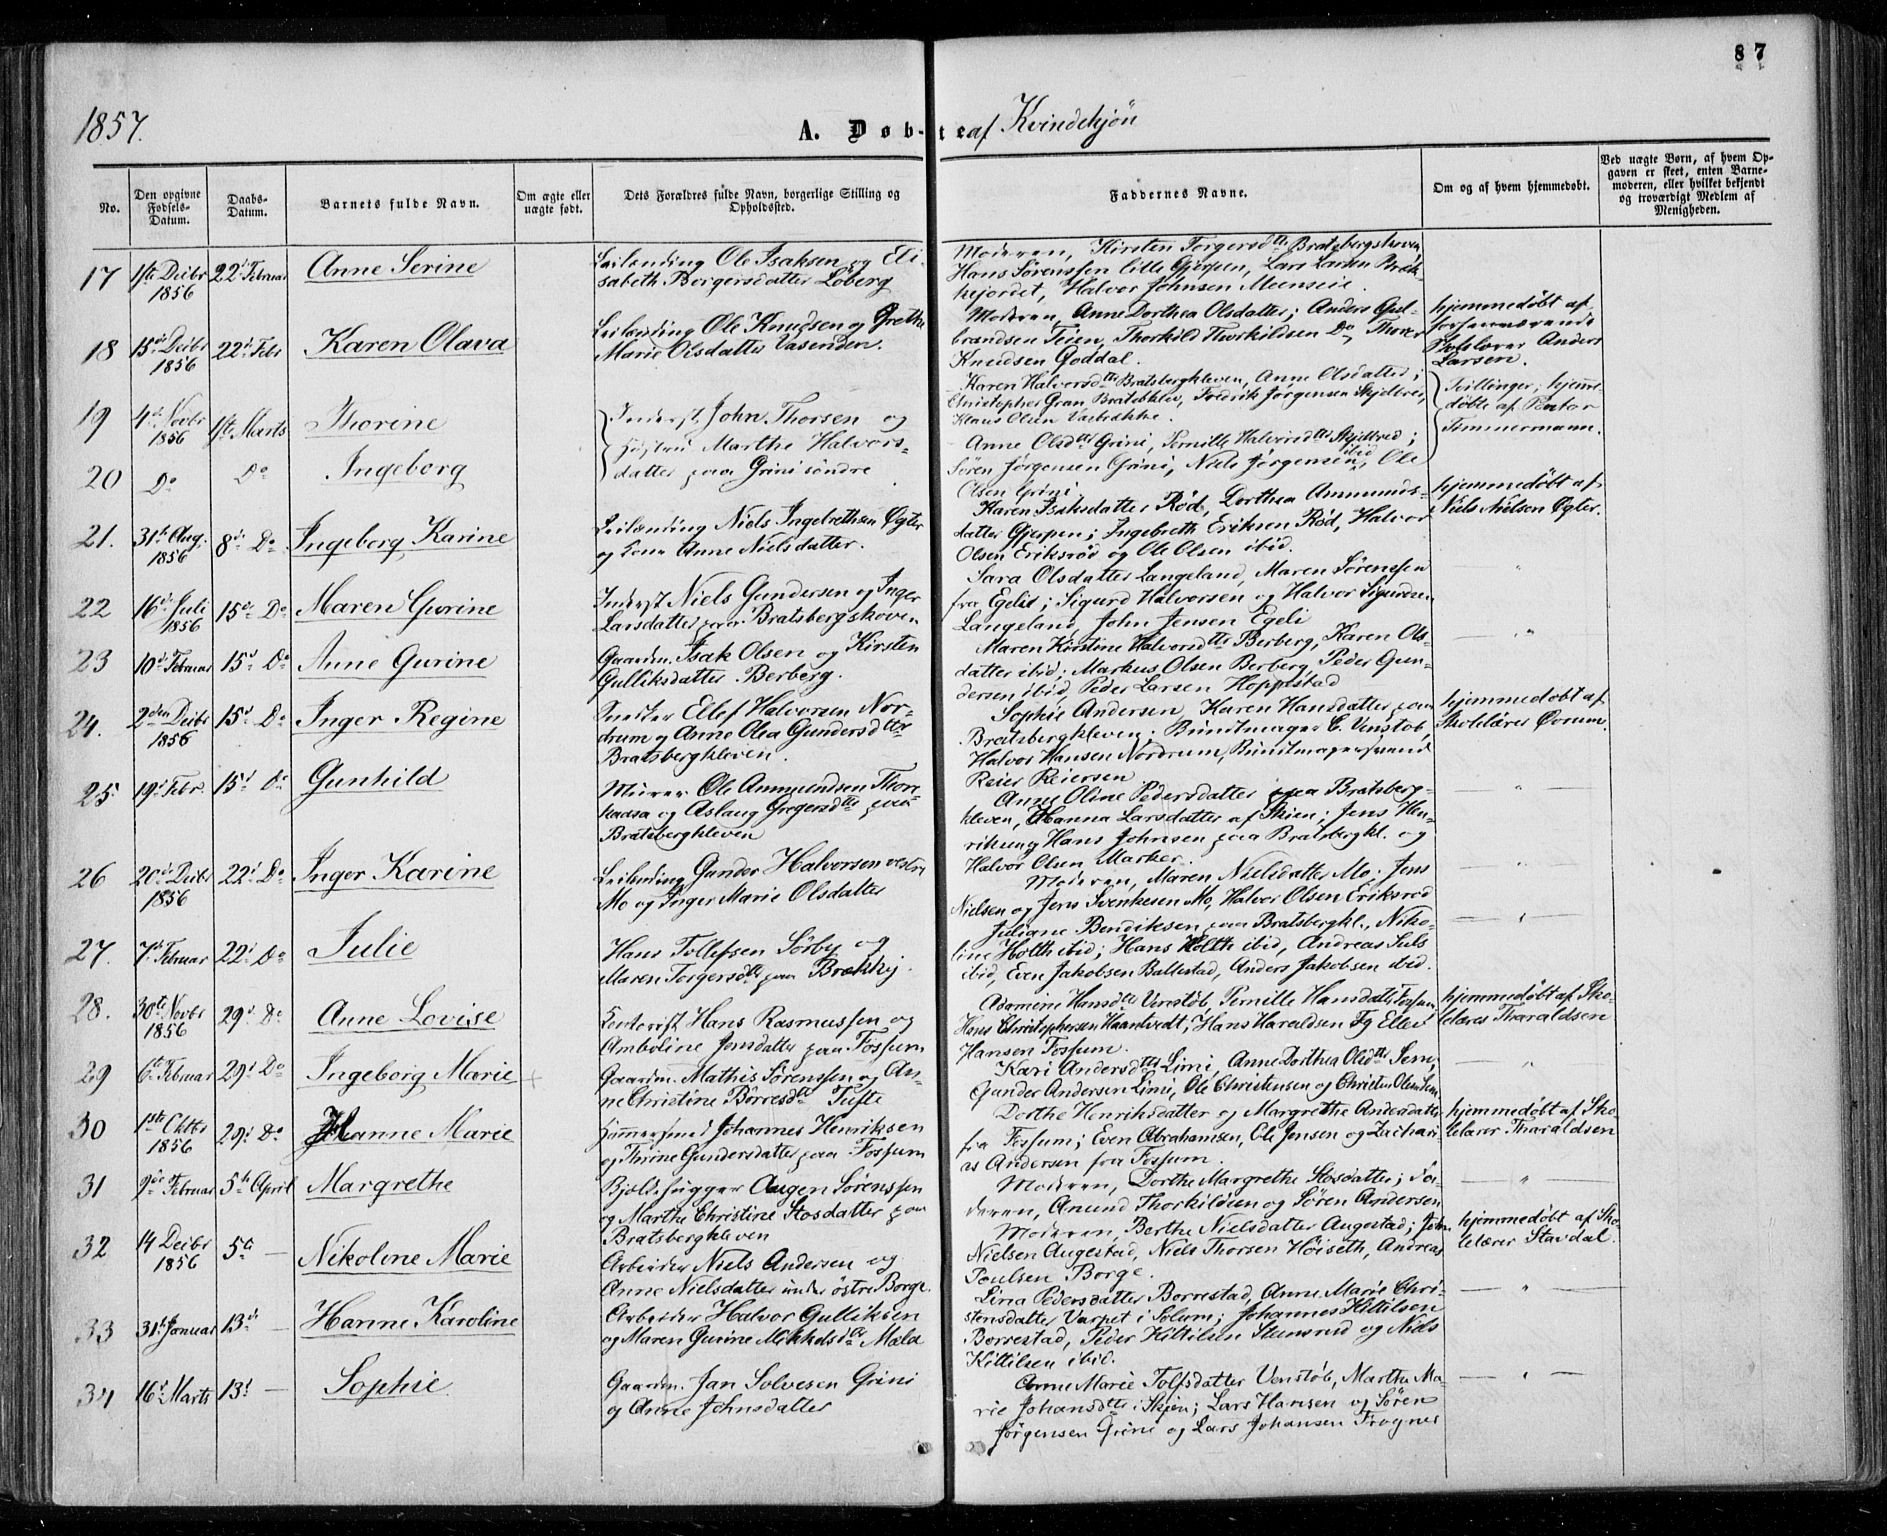 87
1857.
A. Døbte af Kvindekjøn
No.
Den opgivne Fødsels-Datum.
Daabs-Datum.
Barnets fulde Navn.
Om ægte eller uægte født.
Dets Forældres fulde Navn, borgerlige Stilling og Opholdssted.
Faddernes Navne.
Om og af hvem hjemmedøbt.
Ved uægte Børn, af hvem Opgaven er skeet, enten Barnemoderen, eller hvilket bekjendt og troværdigt Medlem af Menigheden.
17 1ste Decbr 1856 22d Februar Anne Serine
Leilending Ole Isaksen og Eli-
sabeth Borgersdatter Løberg
Moderen, Kirsten Torgersdtr Bratsbergskoven,
Hans Sørenssen lille Gjerpen, Lars Larsen Bræk-
kejordet, Halvor Johnsen Meenseie.
18 15de Decbr 1856 22d Febr Karen Olava
Leilending Ole Knudsen og Grethe
Marie Olsdatter Vasenden.
Moderen, Anne Dorthea Olsdatter; Anders Gul-
brandsen Teien, Thorkild Thorkildsen Do, Thore
Knudsen Goddal.
hjemmedøbt af
forhenværende
Skolelærer Anders
Larsen.
19 4de Novbr 1856 1ste Marts Thorine
Inderst John Thorsen og
Hustru Marthe Halvors-
datter paa Grini søndre
Karen Halvorsdtr Bratsbergkleven, Anne Olsdatter;
Christopher Gran Bratsbklev, Fredrik Jørgensen Skjelbred,
Klaus Olsen Vaebrække.
Tvillinger; hjemme-
døbte af Pastor
Timmermann.
20 Do Do Ingeborg
Anne Olsdtr Grini, Pernille Halvorsdtr Skjelbred;
Søren Jørgensen Grini, Niels Jørgensen ibid, Ole
Olsen Grini
21. 31te Aug. 1856 8de Do Ingeborg Karine
Leilending Niels Ingebrethsen Øgter
og Kone Anne Nielsdatter.
Karen Isaksdatter Rød, Dorthea Ammunds-
datter Gjerpen; Ingebreth Eriksen Rød, Halvor
Olsen Eriksrød og Ole Olsen ibid.
hjemmedøbt af
Niels Nielsen Øgter.
22 16de Juli 1856 15de Do Maren Gurine
Inderst Niels Gundersen og Inger
Larsdatter paa Bratsbergskoven
Sara Olsdatter Langeland, Maren Sørenssen
fra Egeli; Sigurd Halvorsen og Halvor Sigurdsen
Langeland, John Jensen Egeli
"
23 10de Februar 15d Do Anne Gurine
Gaardm. Isak Olsen og Kirsten
Gulliksdatter Berberg.
Maren Kirstine Halvorsdtr Berberg, Karen Ols-
datter ibid; Markus Olsen Berberg, Peder Gun-
dersen ibid, Peder Larsen Hoppestad
— " —
24. 2den Decbr 1856 15d Do Inger Regine
Snedker Ellef Halvorsen Nor-
drum og Anne Olea Gundersdtter
Bratsbergkleven.
Sophie Andersen, Karen Hansdatter paa
Bratsbergkleven; Bundtmager C. Venstøb,
Halvor Hansen Nordrum, Bundtmagersvend
Reier Reiersen
hjemmedøbt af
Skolelærer Øvrum.
25. 19d Febr. 15d Do Gunhild
Murer Ole Ammundsen Thor-
kaasa og Aslaug Gregersdtr paa
Bratsbergkleven
Anne Oline Pedersdatter paa Bratsberg-
kleven, Hanna Larsdatter af Skien; Jens Hen-
riksen, Hans Johnsen paa Bratsbergkl. og
Halvor Olsen Marker.
— " —
26 20de Decbr 1856 22d Do Inger Karine
Leilending Gunder Halvorsen vestre
Mo og Inger Marie Olsdatter
Moderen, Maren Nielsdatter Mo; Jens
Nielsen og Jens Svenkesen Mo, Halvor Olsen Eriksrød
"
27. 7de Februar 22d Do Julie
Hans Tollefsen Sørby og
Maren Torgersdtr paa Brækkj.
Juliane Bendiksen paa Bratsbergkl., Niko-
line Holth ibid; Hans Holth ibid, Andreas Suls
ibid, Even Jakobsen Ballestad, Anders Jakobsen ibid.
— " —
28. 30te Novbr 1856 29d Do Anne Lovise
Kontorist Hans Rasmussen og
Amboline Jensdatter paa Fossum
Adamine Hansdtr Venstøb, Pernille Hansdatter Fossum,
Hans Christophersen Haantvedt, Hans Haraldsen Eller
Hansen Fossum.
hjemmedøbt af Sko-
lelærer Tharaldsen
29 6te Februar 29d Do Ingeborg Marie +
Gaardm. Mathis Sørenssen og An-
ne Christine Børresdtr Tufte
Kari Andersdtr Limi, Anne Dorthea Olsdtr Sem;
Gunder Andersen Limi, Ole Christensen og Christen Olsen Sem
— " —
30 1ste Oktbr 1856 29d Do Johanne Marie
Hammersmed Johannes Henriksen
og Thrine Gundersdatter paa Fossum
Dorthe Henriksdatter og Margrethe Andersdatter
fra Fossum; Even Abrahamsen, Ole Jensen og Zachari-
as Andersen fra Fossum.
hjemmedøbt af Sko-
lelærer Tharaldsen
31 9de Februar 5te April Margrethe
Bjelkehugger Augen Sørenssen
og Marthe Christine Stosdatter paa
Bratsbergkleven
Moderen, Dorthe Margrethe Stosdatter; Fa-
deren, Anund Thorkildsen og Søren Andersen
— " —
32 14 Decbr 1856 5te — Nikoline Marie
Arbeider Niels Andersen og
Anne Nielsdatter under østre Borge.
Moderen, Berthe Nielsdatter Augestad; John
Nielsen Augestad, Niels Thorsen Høiseth, Andreas
Poulsen Borge.
hjemmedøbt af Sko-
lelærer Stavdal.
33 31te Januar 13de Hanne Karoline
Arbeider Halvor Gulliksen
og Maren Gurine Mikkelsdtr Mæla
Lina Pedersdatter Borrestad, Anne Marie Chri-
stensdatter Varpet i Solum; Johannes Kittilsen
Borrestad, Peder Kittilsen Stensrud og Niels
Kittilsen ibid.
— " —
34 16d Marts 13d — Sophie
Gaardm. Jan Solvesen Grini
og Anne Johnsdatter
Anne Marie Tolfsdatter Venstøb, Marthe Ma-
rie Johansdtr i Skjen; Lars Hansen og Søren
Jørgensen Grini og Lars Johansen Frogner
— " —